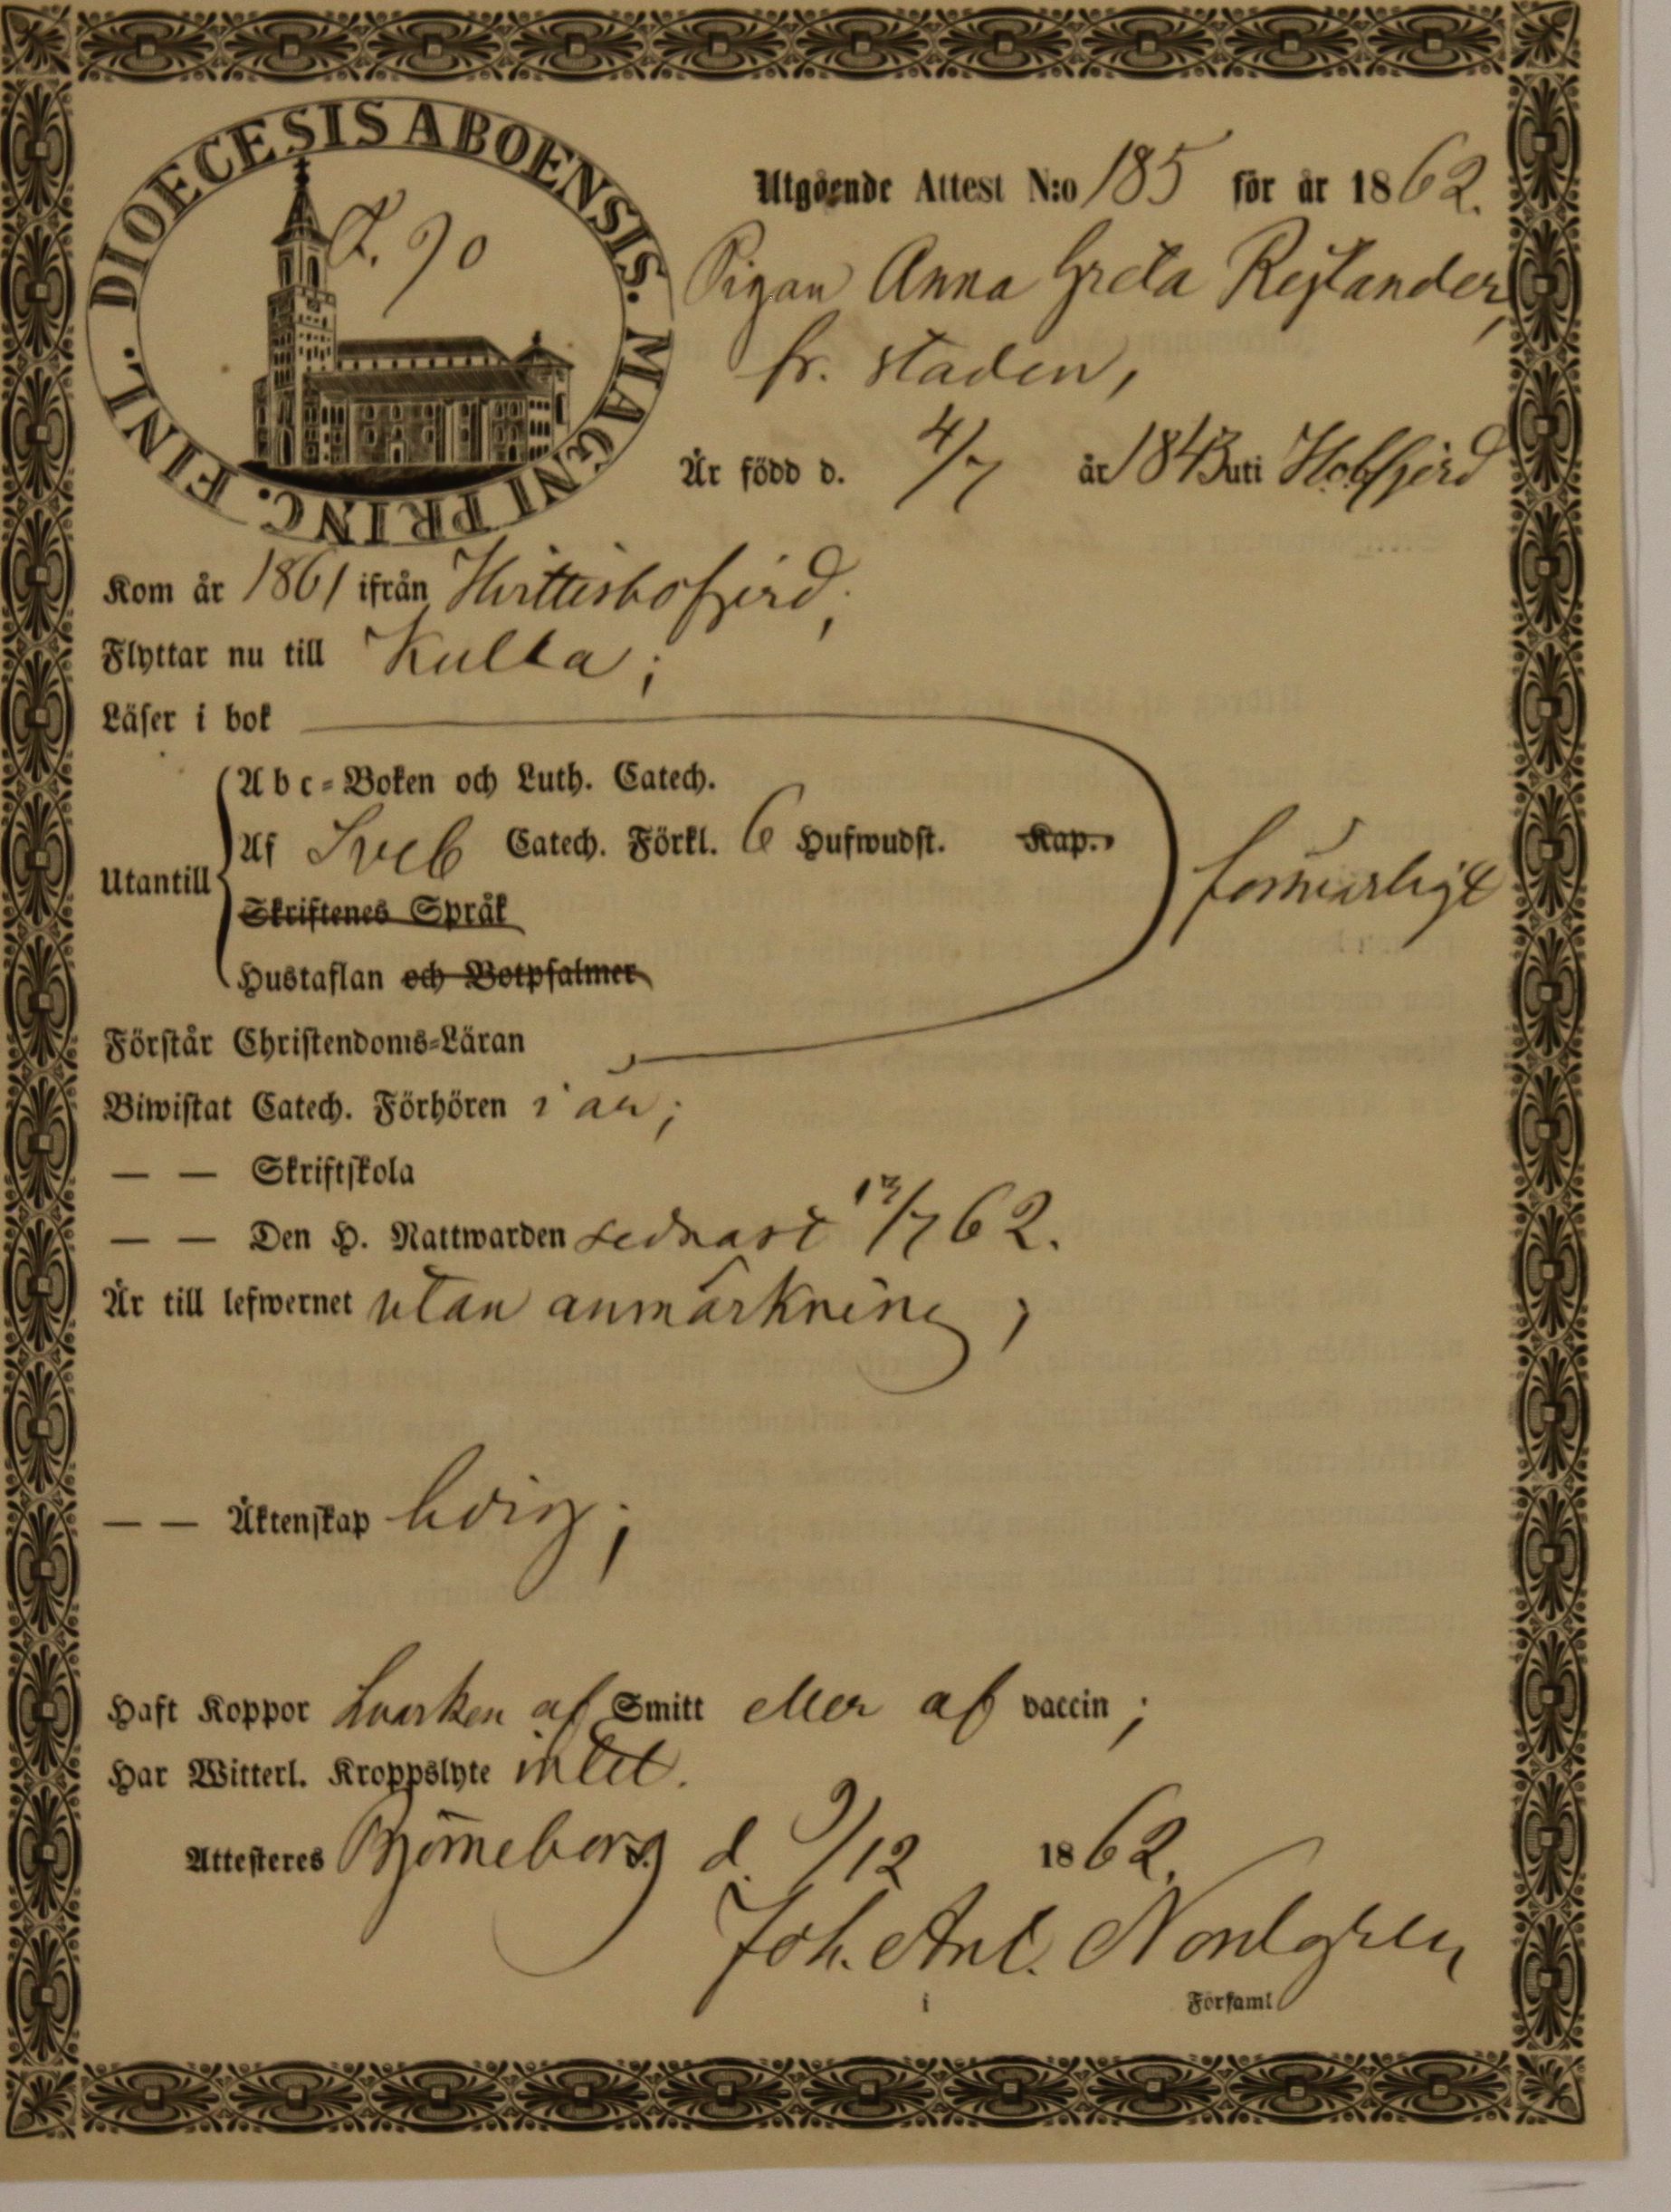 DIOECESIS ABOENSIS. MAGNI PRINC. FINL.
90
Utgående Attest N:o 185 för år 1862.
Pigan Anna Greta Reylander,
fr. staden,
Är född d. 4/7 år 1843 uti
Kom år 1861 ifrån Hvittisbofjerd;
Flyttar nu till Kulla;
Läser i bok
Abc-Boken och Luth. Catech.
Af Sveb Catech. Förkl. 6 Hufwudst. Kap.
Utantill
Skriftenes Språk
Hustaflan och Botpsalmer
försvarligt
Förstår Christendoms-Läran
Biwistat Catech. Förhören i år;
— — Skriftskola
— — Den H. Nattwarden sednast /7 62.
Är till lefwernet utan anmärkning;
— — Äktenskap ledig;
Haft Koppor hvarken af Smitt eller af vaccin;
Har Witterl. Kroppslyte intet.
Attesteres Björneborg d. 9/12 1862.
Joh. Ant. Nordgren
i Församl